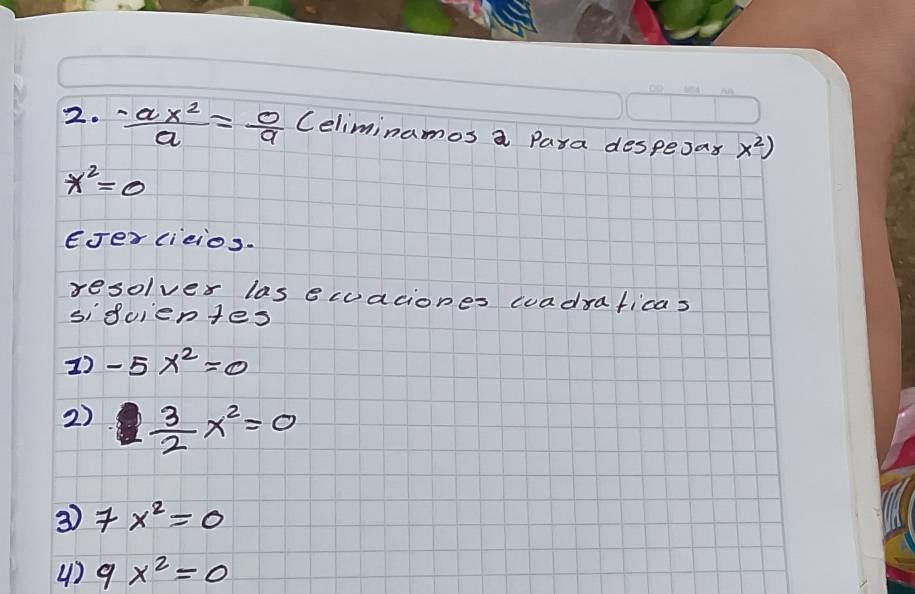 2. -ax²/a = 0/a (eliminamos a Para despejar x²)
x²=0
EJercicios.
resolver las ecuaciones cuadraticas
siguientes
1) -5x²=0
2) 3/2 x²=0
3) 7x²=0
4) 9x²=0